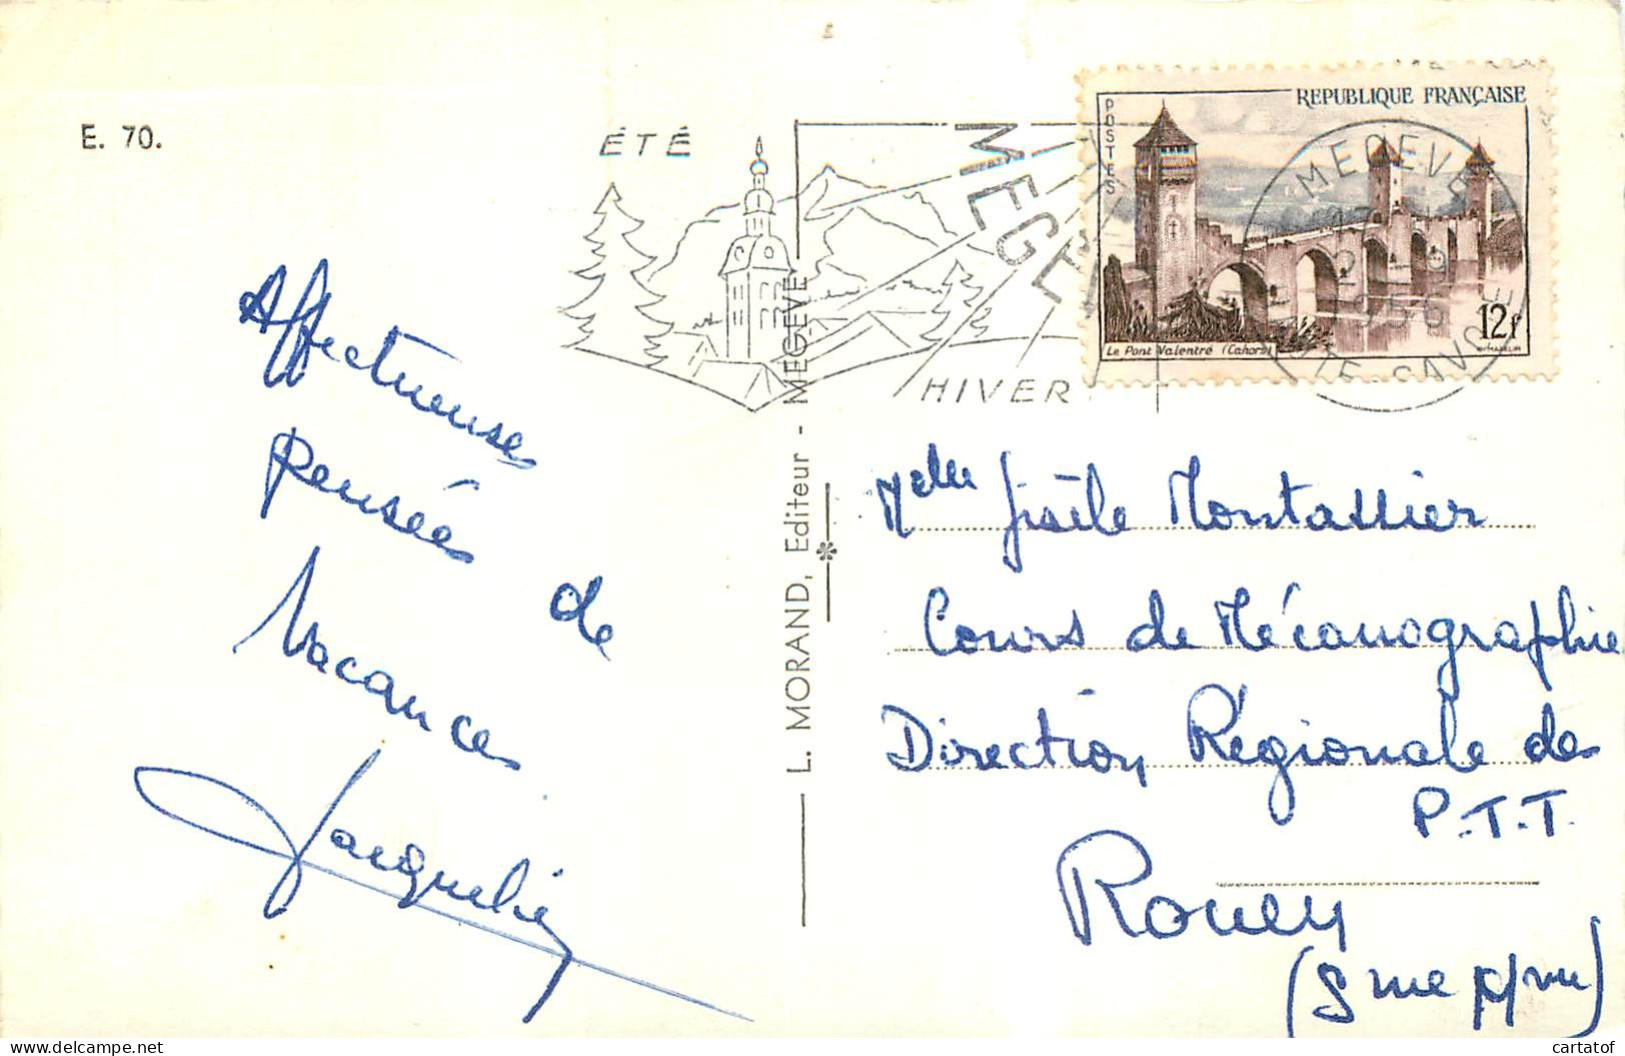 E. 70.
ÉTÉ
MEGÈ
HIVER
POSTES
REPUBLIQUE FRANÇAISE
Le Pont Valentré (Cahors)
12F
MEGEVE
1956
HTE SAVOIE
Affectueuses
pensées
de
Vacances
Jacqueline
L. MORAND, Editeur - MEGÈVE
*
Melle Gisèle Montassier
Cours de Mécanographie
Direction Régionale des
P.T.T.
Rouen
(Sme
delcampe.net
cartatof